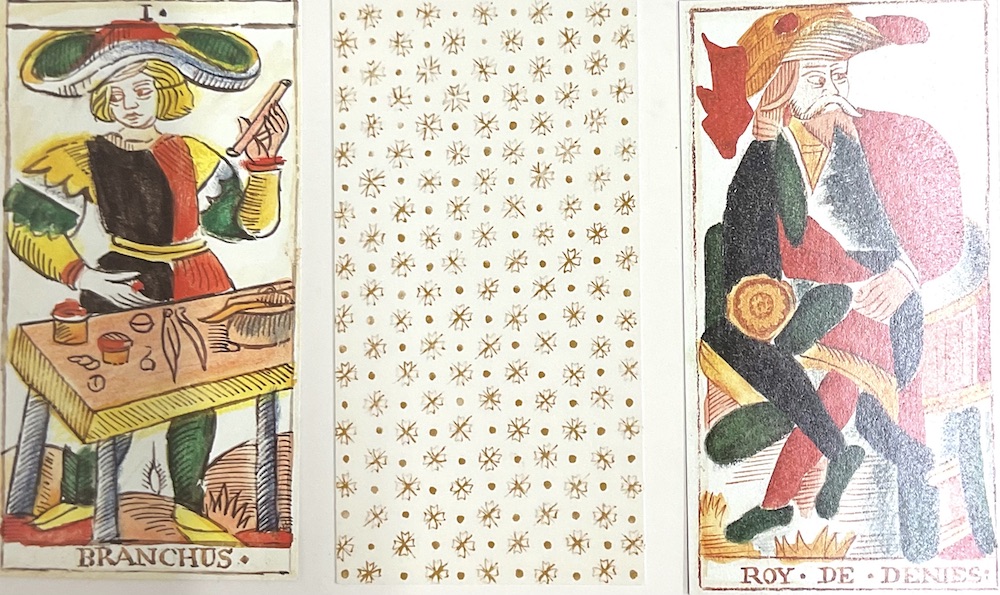 I·
BRANCHUS·
ROY·DE·DENIES: